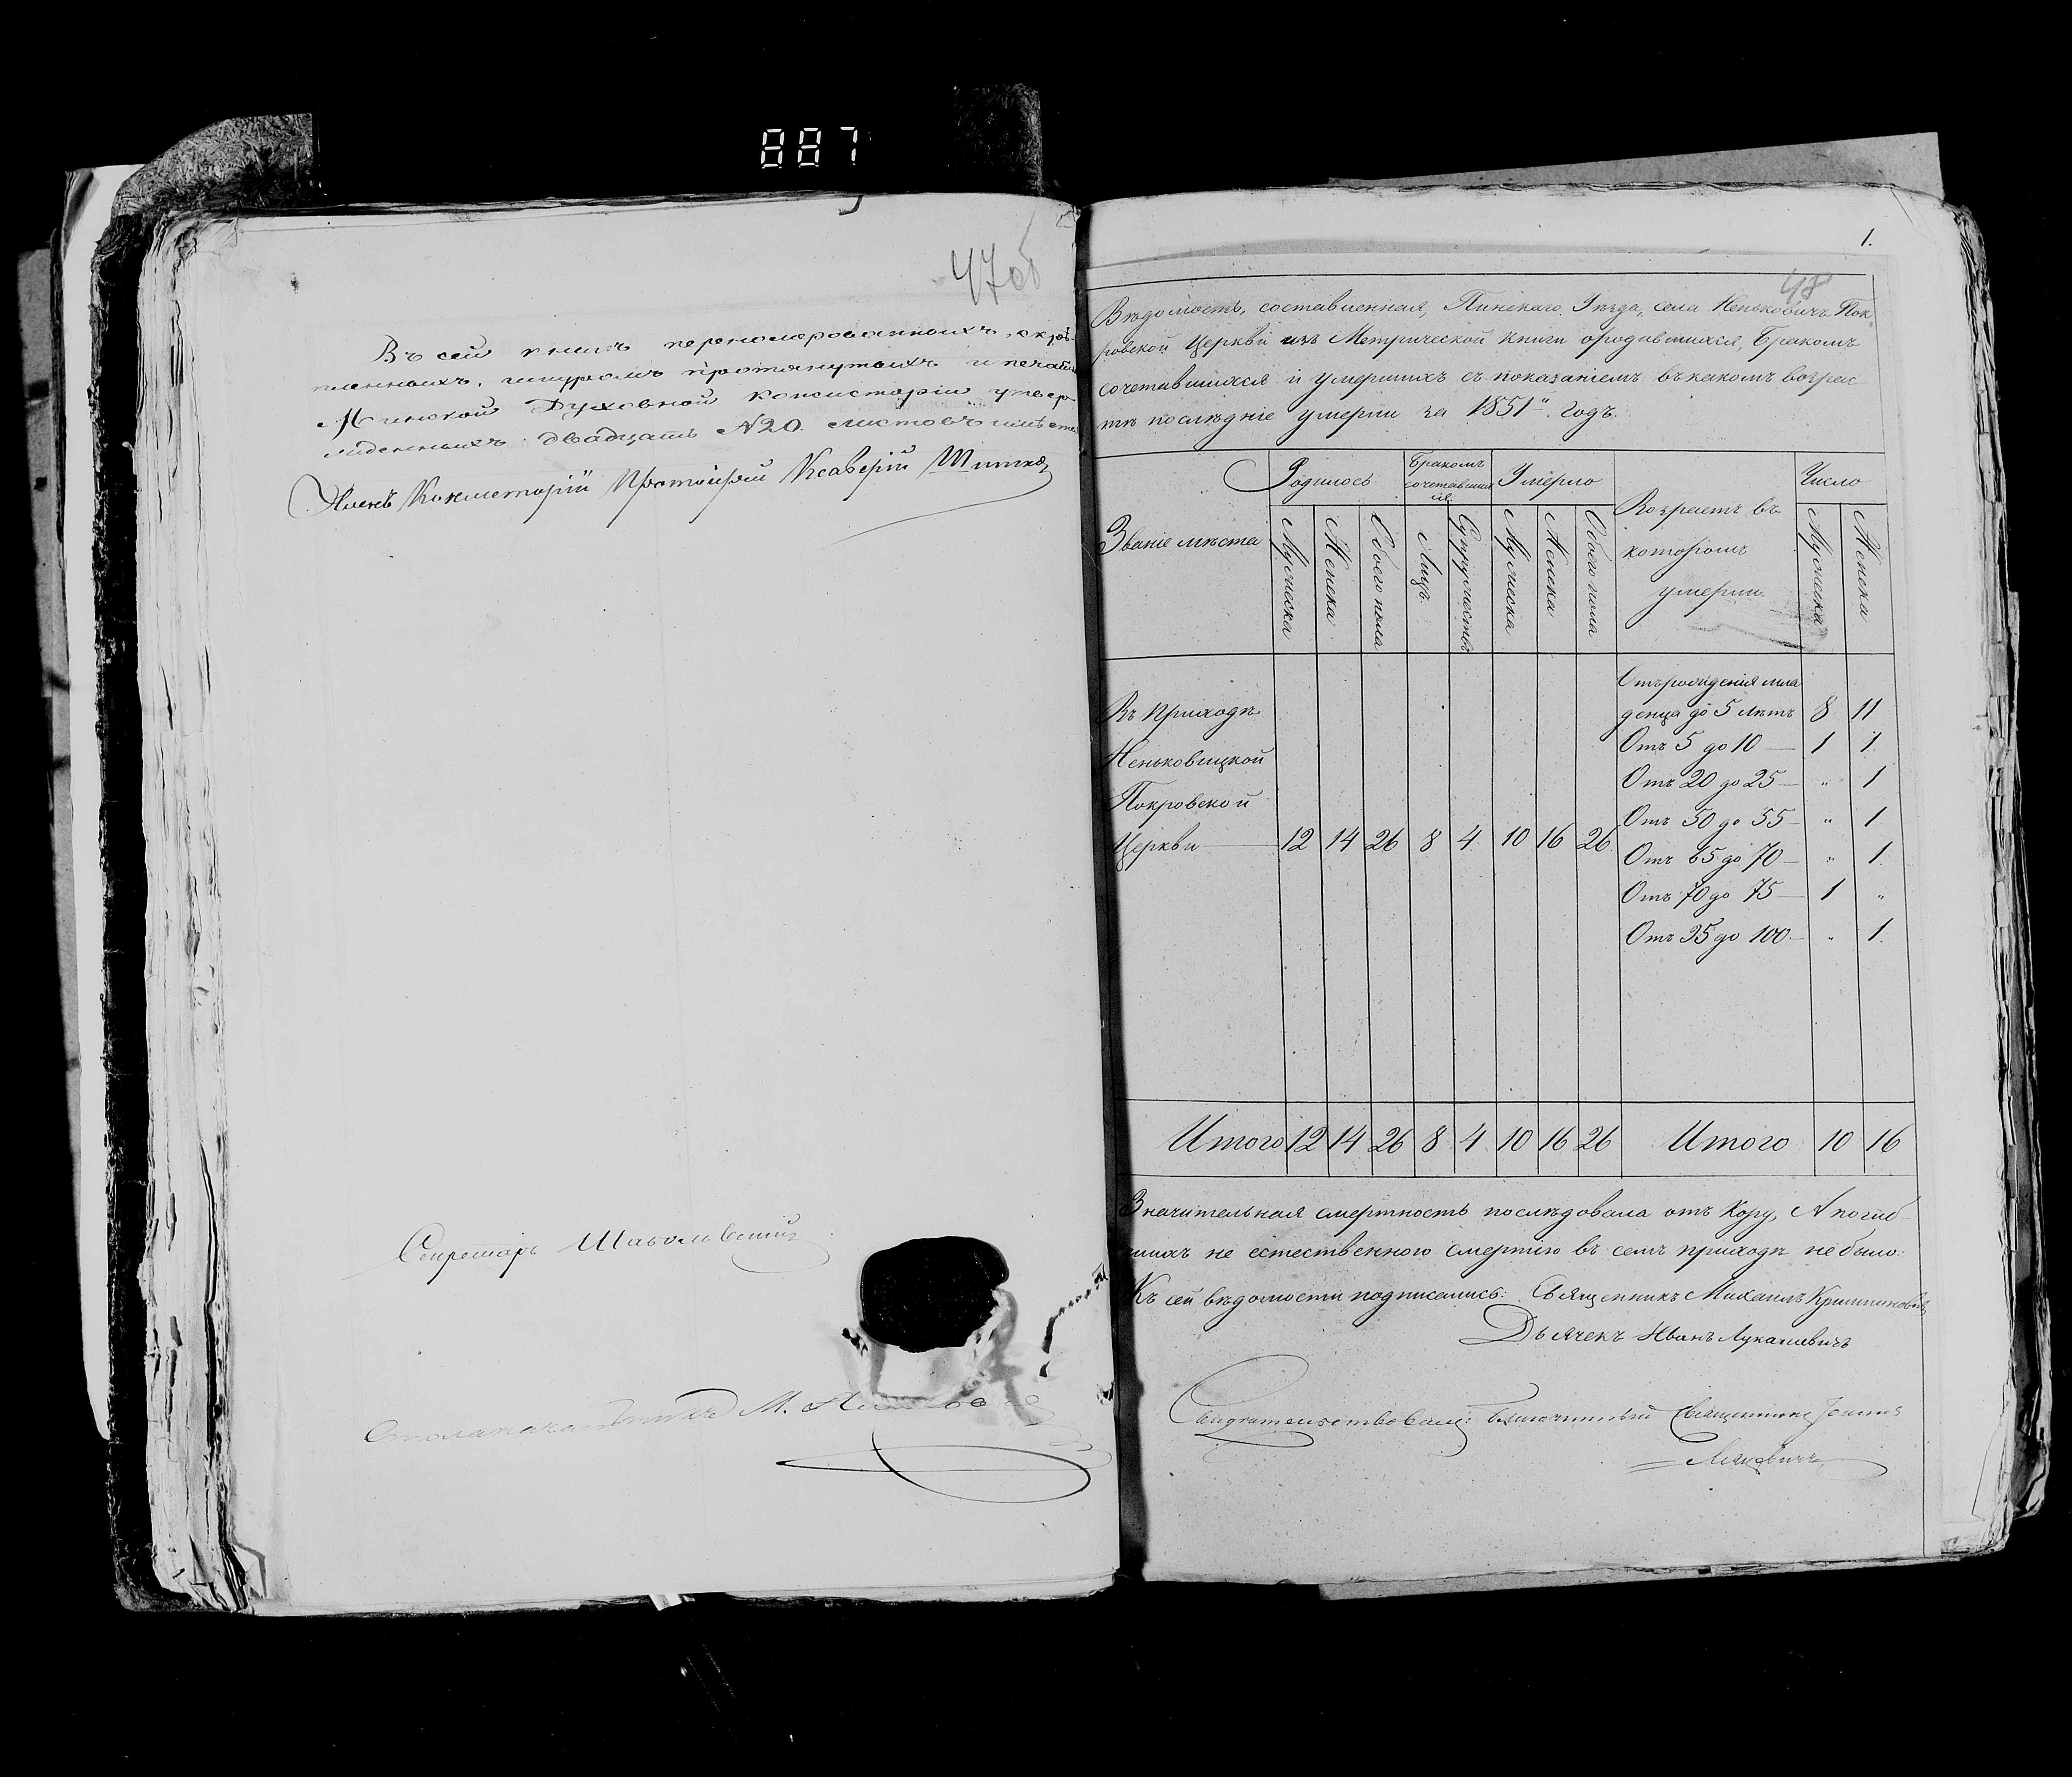 887
47об
Въ сей книгѣ переномерованныхъ, скрѣ-
пленныхъ, шнуромъ протянутыхъ и печатью
Минской Духовной Консисторіи утвер-
жденныхъ двадцать №20. листовъ имѣется
Членъ Консисторіи Протоіерей Ксаверій
Секретарь
Столоначальникъ М.
1.
48
Вѣдомость, составленная, Пинскаго Уѣзда, села Неньковичъ Пок-
ровской Церкви изъ Метрической книги ородившихся, Бракомъ
сочетавшихся и умершихъ съ показаніемъ въ какомъ возрас-
тѣ послѣдніе умерли за 1851й. годъ.
Званіе мѣста
Родилось
Бракомъ сочетавшихся
Умерло
Возрастъ въ
которомъ
умерли
Число
Мужеска Женска Обоего пола Лицъ Супружествъ Мужеска Женска Обоего пола Мужеска Женска
Въ Приходѣ
Неньковицкой
Покровской
Церкви 12 14 26 8 4 10 16 26
Отъ рожденія мла
денца до 5 лѣтъ 8 11
Отъ 5 до 10 — 1 1
Отъ 20 до 25 — " 1
Отъ 50 до 55 — " 1
Отъ 65 до 70 — " 1.
Отъ 70 до 75 — 1 "
Отъ 95 до 100 — " 1.
Итого 12 14 26 8 4 10 16 26 Итого 10 16
Значительная смертность послѣдовала отъ Кору, А погиб-
шихъ не естественною смертію въ семъ приходѣ не было.
Къ сей вѣдомости подписались: Священникъ Михаилъ
Дьячекъ Иванъ Лукашевичъ
Свидѣтельствовалъ: Благочинный Священникъ Іоаннъ